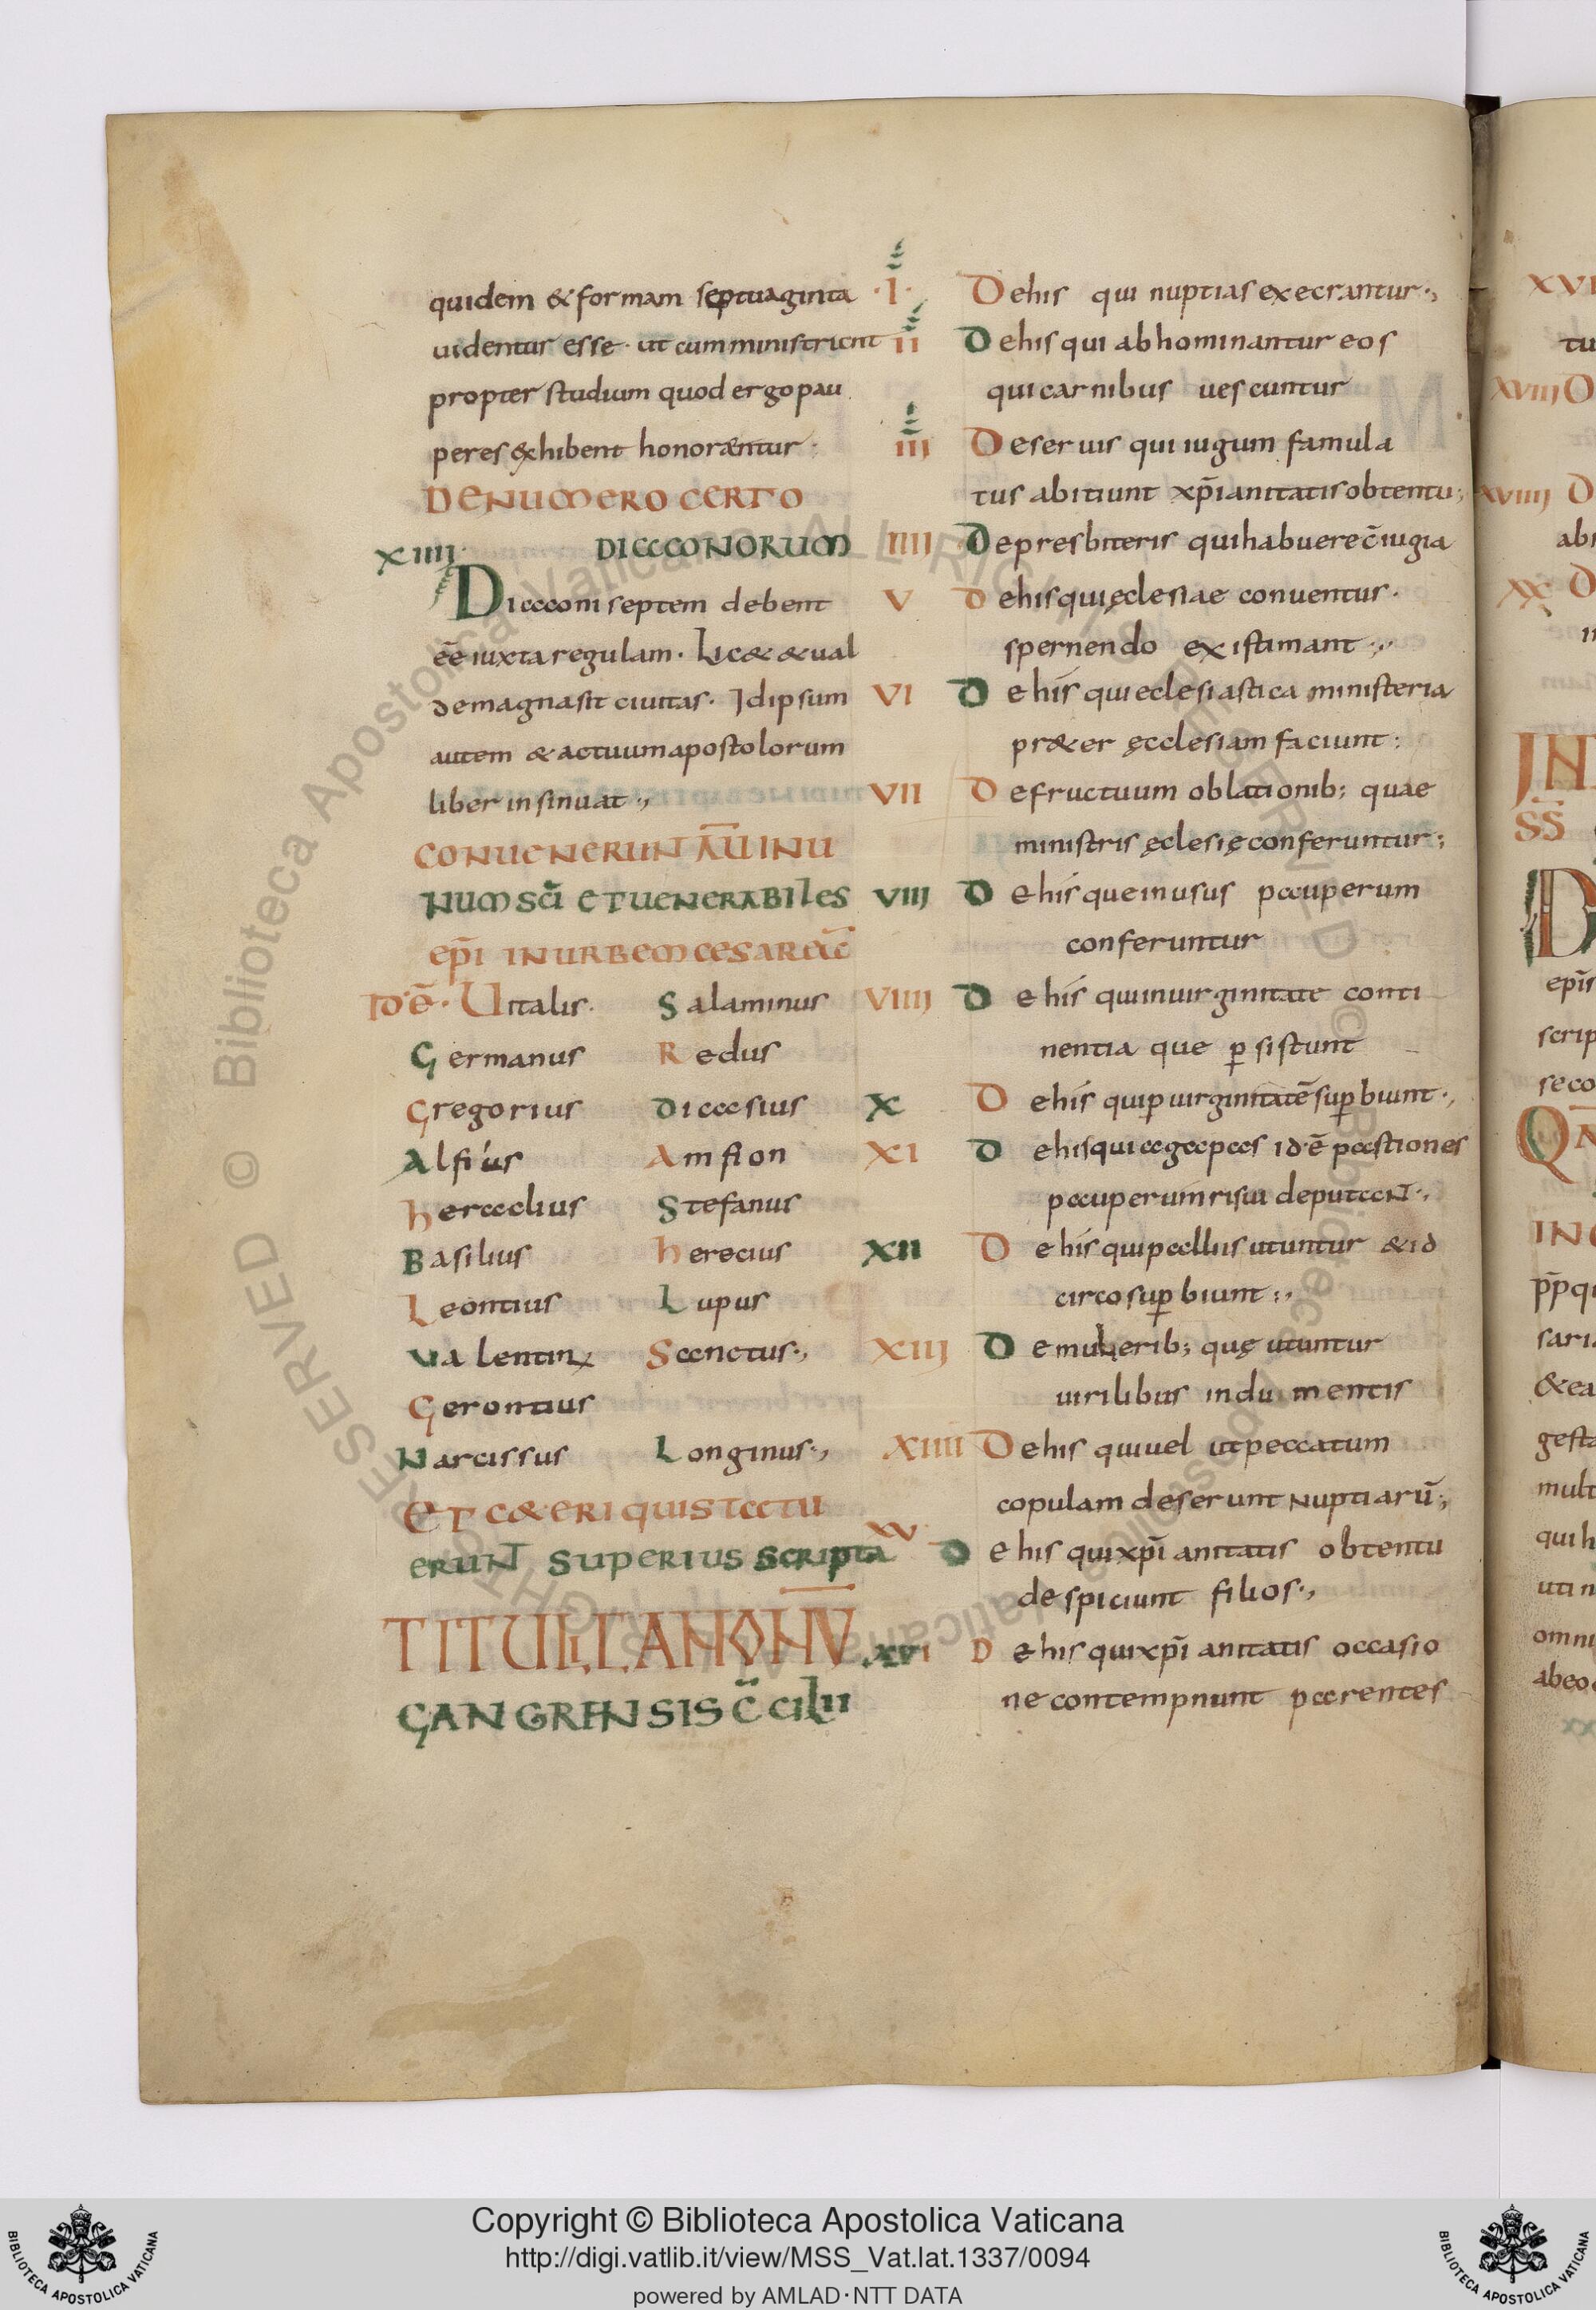 quidem & formam septuaginta
uidentur esse · ut cumministrient
propter studium quod ergopau
peres exhibent honorentur ·
DENUMERO CERTO
XIIII DIACONORUM
Diaconi septem debent
eē iuxta regulam · Lic& &ual
demagnasit ciuitas · Idipsum
autem & actuum apostolorum
liber insinuat ·,
CONUENERUNT AŪ INU
NUM SC̄I ET UENERABILES
EP̄I IN URBEM CESAREĀ
ID·Ē· Uitalis · Salaminus
Germanus Redus
Gregorius Diacesius
Alfius Amfion
Heraclius Stefanus
Basilius Herecius
Leontius Lupus
Valentinx Sanctus ·,
Gerontius
Narcissus Longinus ·,
ET C&ERI QUI STATU
ERUNT SUPERIUS SCRIPTA
TITULI CANONŪ
GANGRENSIS C̄CILII
·I· Dehis qui nuptias execrantur ·,
II Dehis qui abhominantur eos
qui carnibus uescuntur
III Deseruis qui iugum famula
tus abitiunt xp̄ianitatis obtentu ;
IIII Depresbiteris qui habuere c̄iugia
V Dehis qui ęclesiae conuentus ·
spernendo existimant ·,
VI Dehis qui eclesiastica ministeria
pr&er ęcclesiam faciunt :
VII Defructuum oblationib; quae
ministris ęclesię conferuntur ;
VIII Dehis que in usus pauperum
conferuntur
VIIII Dehis qui in uirginitate conti
nentia que p sistunt
X Dehis qui p uirginitatē sup biunt ·,
XI Dehis qui agapas id·ē pastiones
pauperum risui deputant ·,
XII Dehis qui palliis utuntur & id
circo sup biunt ·,
XIII Demulierib; quę utuntur
uirilibus indumentis
XIIII Dehis qui uel ut peccatum
copulam deserunt nuptiarū ;
XV Dehis qui xp̄ianitatis obtentu
despiciunt filios ·,
XVI Dehis qui xp̄ianitatis occasio
ne contempnunt parentes
XVI
tu
XVIII D
XVIIII D
ab
XX D
IN
SS̄
D
ep̄is
scrip
seco
Q
IN
p̄pqu
saria
&ea
gesta
mult
qui h
uti n
omni
abeo
XX
© Biblioteca Apostolica Vaticana ALL RIGHTS RESERVED
© Biblioteca Apostolica Vaticana ALL RIGHTS RESERVED
BIBLIOTECA APOSTOLICA VATICANA
Copyright © Biblioteca Apostolica Vaticana
http://digi.vatlib.it/view/MSS_Vat.lat.1337/0094
powered by AMLAD·NTT DATA
BIBLIOTECA APOSTOLICA VATICANA